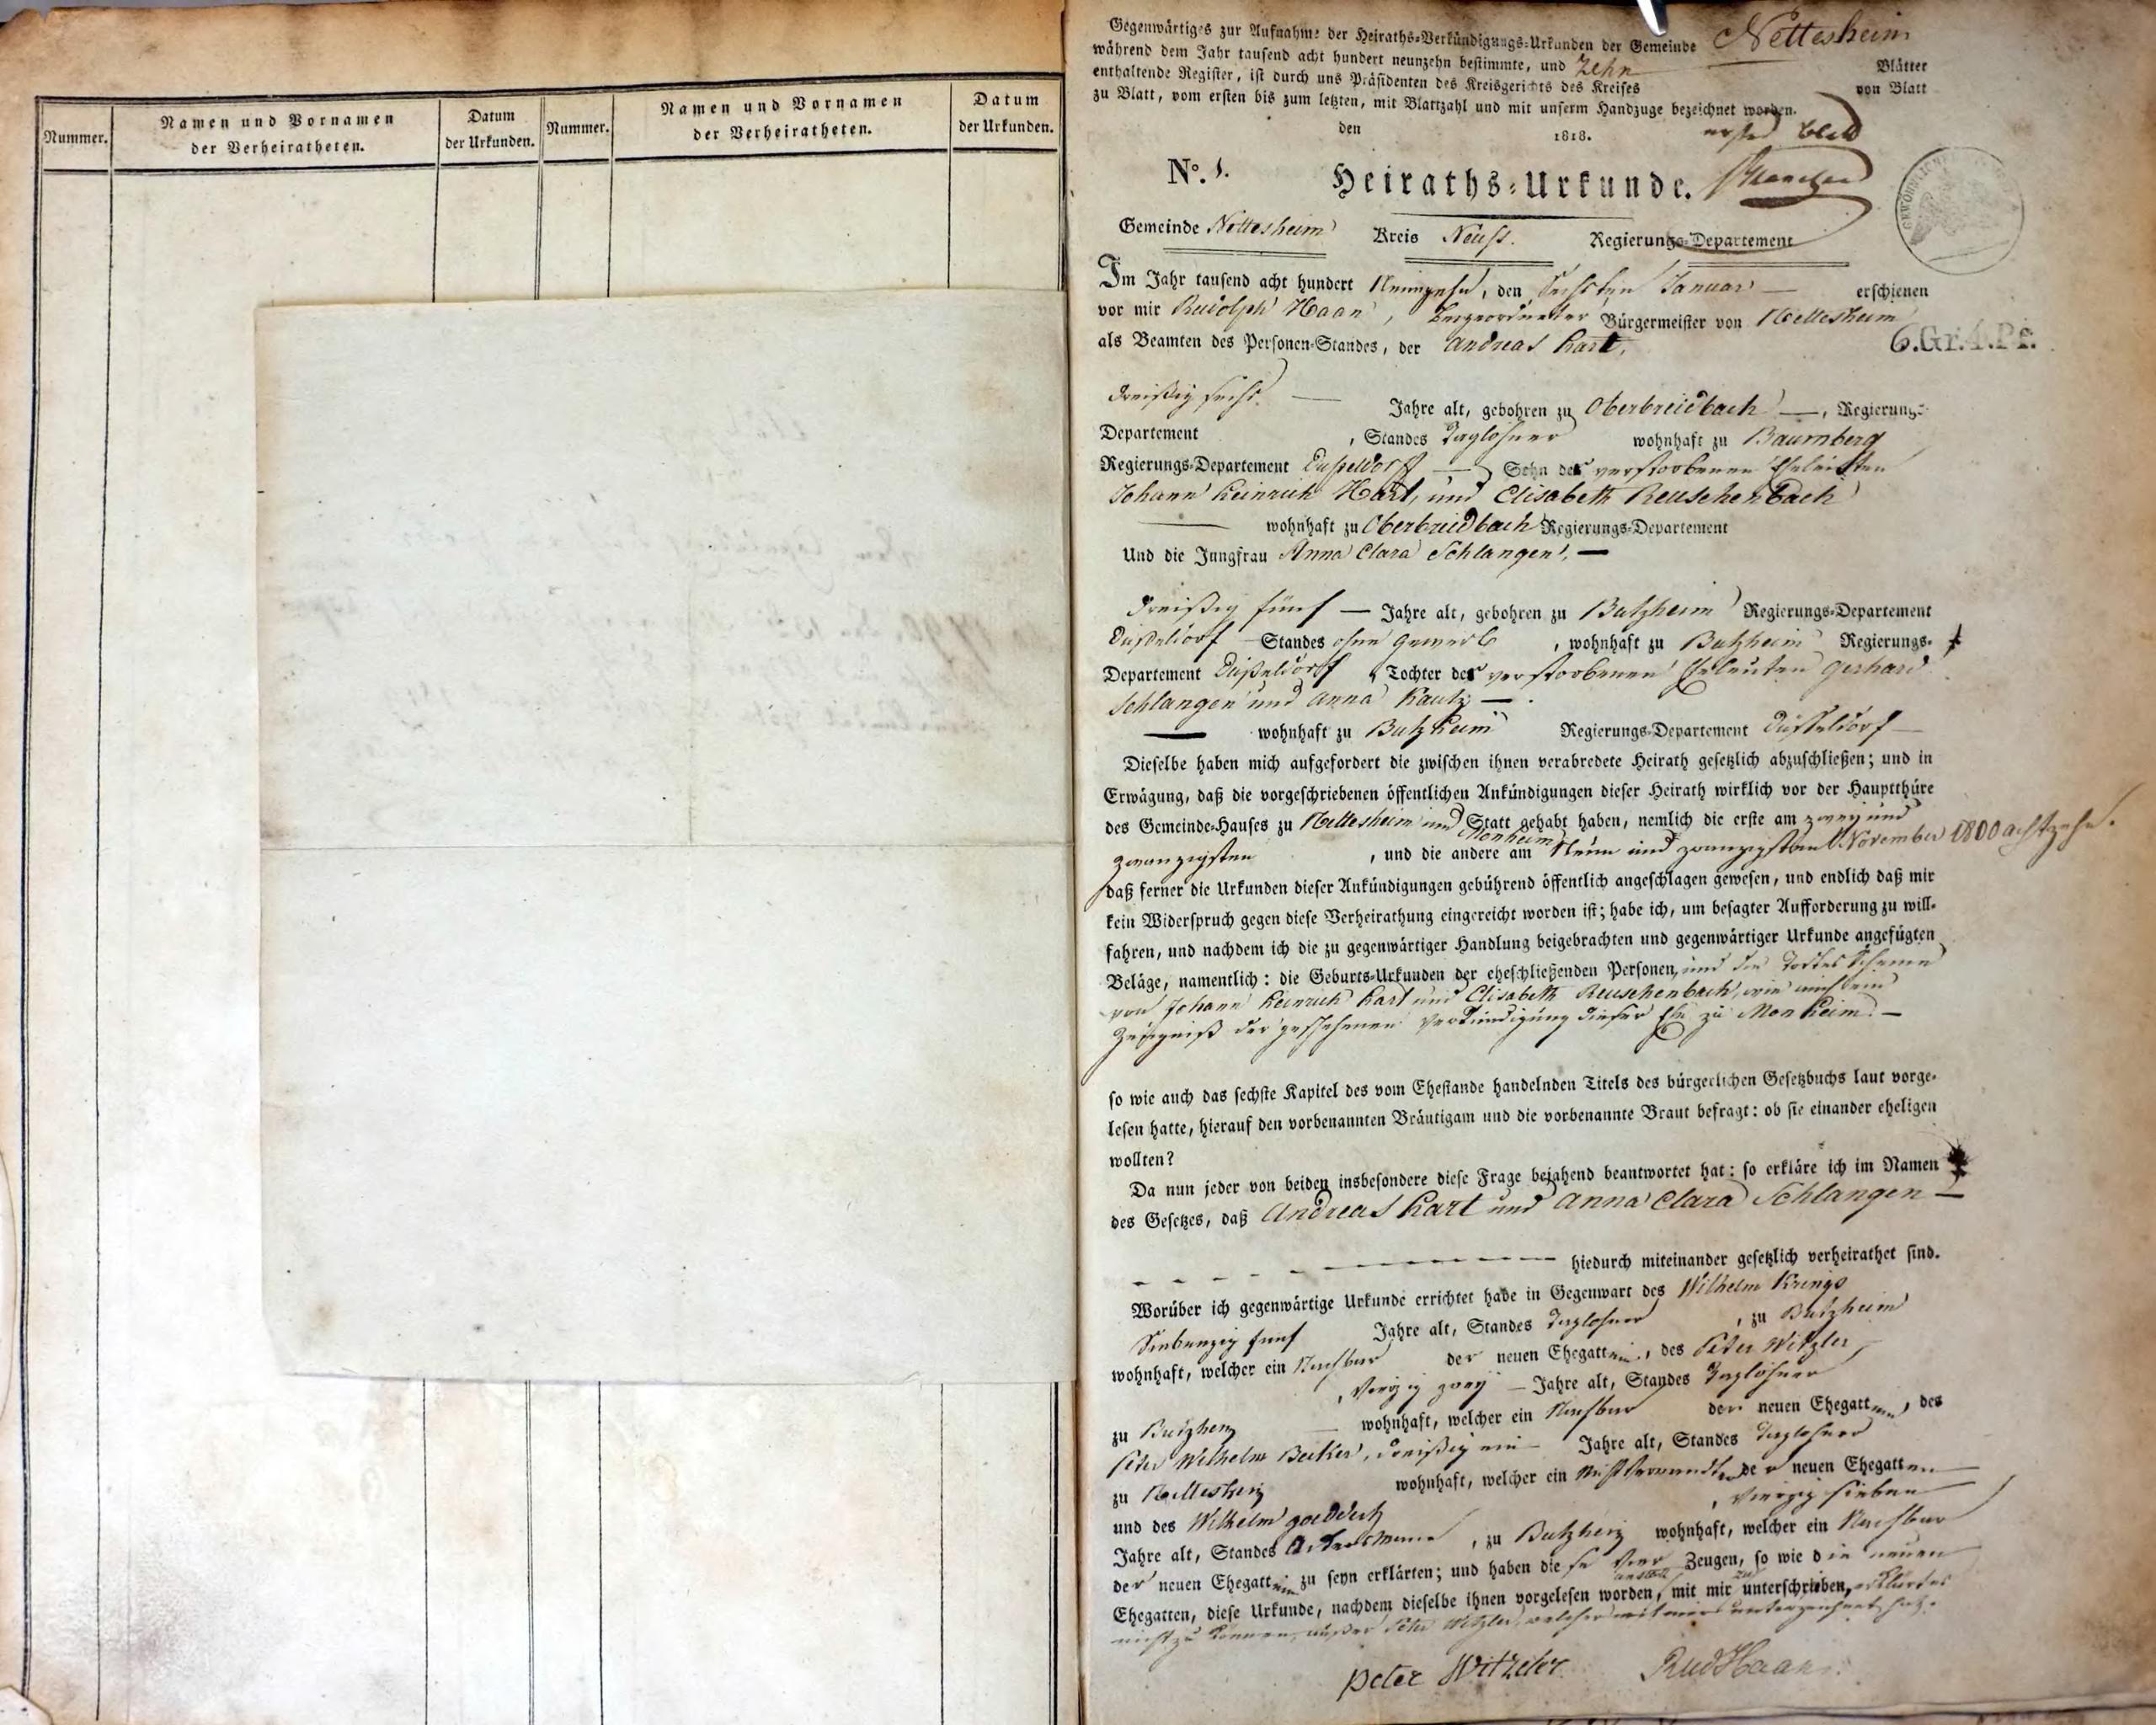 Nummer.
Namen und Vornamen
der Verheiratheten.
Datum
der Urkunden.
Nummer.
Namen und Vornamen
der Verheiratheten.
Datum
der Urkunden.
Gegenwärtiges zur Aufnahme der Heiraths-Verkündigungs-Urkunden der Gemeinde Nettesheim
während dem Jahr tausend acht hundert neunzehn bestimmte, und Zehn Blätter
enthaltende Register, ist durch uns Präsidenten des Kreisgerichts des Kreises von Blatt
zu Blatt, vom ersten bis zum letzten, mit Blattzahl und mit unserm Handzuge bezeichnet worden.
den 1818. erstes Blatt
No. 1. Heiraths-Urkunde.
Gemeinde Nettesheim Kreis Neuss. Regierungs-Departement
Im Jahr tausend acht hundert Neunzehn, den Sechsten Januar — erschienen
vor mir Rudolph Haan, Beigeordneter Bürgermeister von Nettesheim
6.Gr.4.Pf.
als Beamten des Personen-Standes, der Andreas Hart,
dreißig sechs — Jahre alt, gebohren zu Oberbreidbach —, Regierungs-
Departement , Standes Taglöhner wohnhaft zu Baumberg
Regierungs-Departement Düsseldorff — Sohn der verstorbenen Eheleuten
Johann Heinrich Hart, und Elisabeth Reuschenbach
— wohnhaft zu Oberbreidbach Regierungs-Departement
Und die Jungfrau Anna Clara Schlangen, —
dreißig fünf — Jahre alt, gebohren zu Butzheim Regierungs-Departement
Düßeldorf Standes ohne Gewerb , wohnhaft zu Butzheim Regierungs-
Departement Düßeldorf , Tochter der verstorbenen Eheleuten Gerhard
Schlangen und Anna Kautz —.
— wohnhaft zu Butzheim Regierungs-Departement Düsseldorf —
Dieselbe haben mich aufgefordert die zwischen ihnen verabredete Heirath gesetzlich abzuschließen; und in
Erwägung, daß die vorgeschriebenen öffentlichen Ankündigungen dieser Heirath wirklich vor der Hauptthüre
des Gemeinde-Hauses zu Nettesheim und Monheim Statt gehabt haben, nemlich die erste am zwey und
zwanzigsten , und die andere am Neun und zwanzigsten November 1800 achtzehn.
daß ferner die Urkunden dieser Ankündigungen gebührend öffentlich angeschlagen gewesen, und endlich daß mir
kein Widerspruch gegen diese Verheirathung eingereicht worden ist; habe ich, um besagter Aufforderung zu will-
fahren, und nachdem ich die zu gegenwärtiger Handlung beigebrachten und gegenwärtiger Urkunde angefügten
Beläge, namentlich: die Geburts-Urkunden der eheschließenden Personen, und die Todtes Scheine
von Johann Heinrich Hart und Elisabeth Reuschenbach, wie auch dem
Zeugniß der geschehenen Verkündigung dieser Ehe zu Monheim. —
so wie auch das sechste Kapitel des vom Ehestande handelnden Titels des bürgerlichen Gesetzbuchs laut vorge-
lesen hatte, hierauf den vorbenannten Bräutigam und die vorbenannte Braut befragt: ob sie einander eheligen
wollten?
Da nun jeder von beiden insbesondere diese Frage bejahend beantwortet hat: so erkläre ich im Namen
des Gesetzes, daß Andreas Hart und Anna Clara Schlangen —
hiedurch miteinander gesetzlich verheirathet sind.
Worüber ich gegenwärtige Urkunde errichtet habe in Gegenwart des Wilhelm Krings
Siebenzig fünf Jahre alt, Standes Taglöhner , zu Butzheim
wohnhaft, welcher ein Nachbar der neuen Ehegattin, des Peter Witzler,
, Vierzig zwey — Jahre alt, Standes Taglöhner
zu Butzheim wohnhaft, welcher ein Nachbar der neuen Ehegattinn, des
Peter Wilhelm Becker, dreißig ein — Jahre alt, Standes Taglöhner
zu Nettesheim wohnhaft, welcher ein Nichtverwandter der neuen Ehegatten —
und des Wilhelm , Vierzig sieben
Jahre alt, Standes Ackersmann , zu Butzheim wohnhaft, welcher ein Nachbar
der neuen Ehegattin zu seyn erklärten; und haben diese vier Zeugen, so wie die neuen
Ehegatten, diese Urkunde, nachdem dieselbe ihnen vorgelesen worden, anstatt mit mir zu unterschrieben, erklärt
nicht zu können, außer Peter Witzler, welcher mit mir unterzeichnet hat.
Peter Witzeler Rud Haan